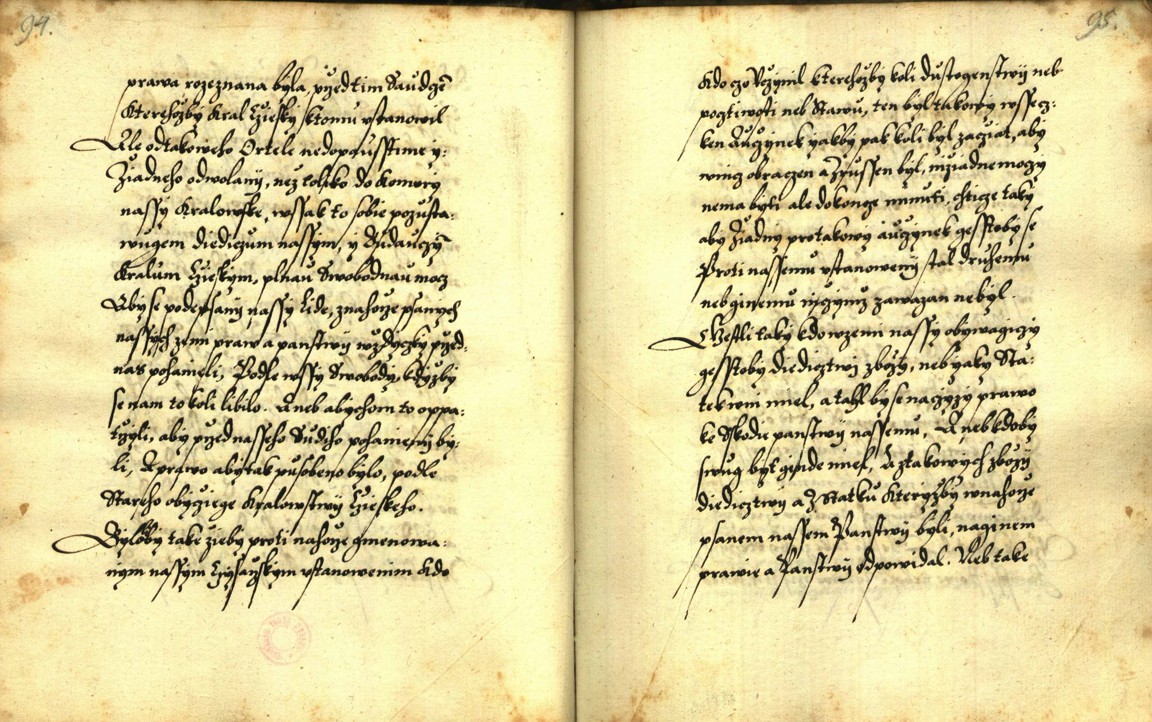 94.
prawa rozeznana byla, przed tim Saudcze
kterehozby kral Czesky k tomu ustanowil
Ale od takoweho Ortele nedopausstime y:
Ziadneho odwolany, nez toliko do komory
nassy kralowske, wssak to sobie pozusta:
wugem diediczum nassym, y Budauczym
kralum Czeskym, plnau Swobodnau mocz
Aby se podepsany nassy lide, z nahorze psanych
nassych zemi praw a panstwy wzdyczky przed
nas pohaneli, Podle wssy Swobody, kdyzby
se nam to koli libilo. Aneb abychom to oppa:
trzyli, aby przed nasseho Sudiho pohanieny by:
li, A prawo aby tak pusobeno bylo, podle
Stareho obyczege kralowstwy Czeskeho.
Byloby take zieby proti nahorze gmenowa:
nym nassym Czysarzskym ustanowenim kdo
95.
kdo czo Uczynil kterehozby koli dustogenstwy neb
pocztiwosti neb Stawu, ten byl takowy wssecz:
ken Auczynek yakby pak koli byl zaczat, aby
wniwecz obraczen a Zrussen byl, w ziadne moczy
nema byti ale dokonce minuti, Chticze taky
aby ziadny pro takowy auczynek gesstoby se
Proti nassemu ustanoweny stal druhemu
neb ginemu niczymz zawazan nebyl.
Gestli taky kdo w zemi nassy obywagiczy
gesstoby diedicztwi zbozy, neb yaky Sta:
tek w ni miel, a tahl by se na czyzy prawo
ke Sskodie panstwy nassemu, Aneb kdoby
swug byt ginde miel, A z takowych zbozy
diedicztwy a Z Statku kteryzby w nahorze
psanem nassem Panstwy byli, na ginem
prawie a Panstwy odpowidal. Neb take